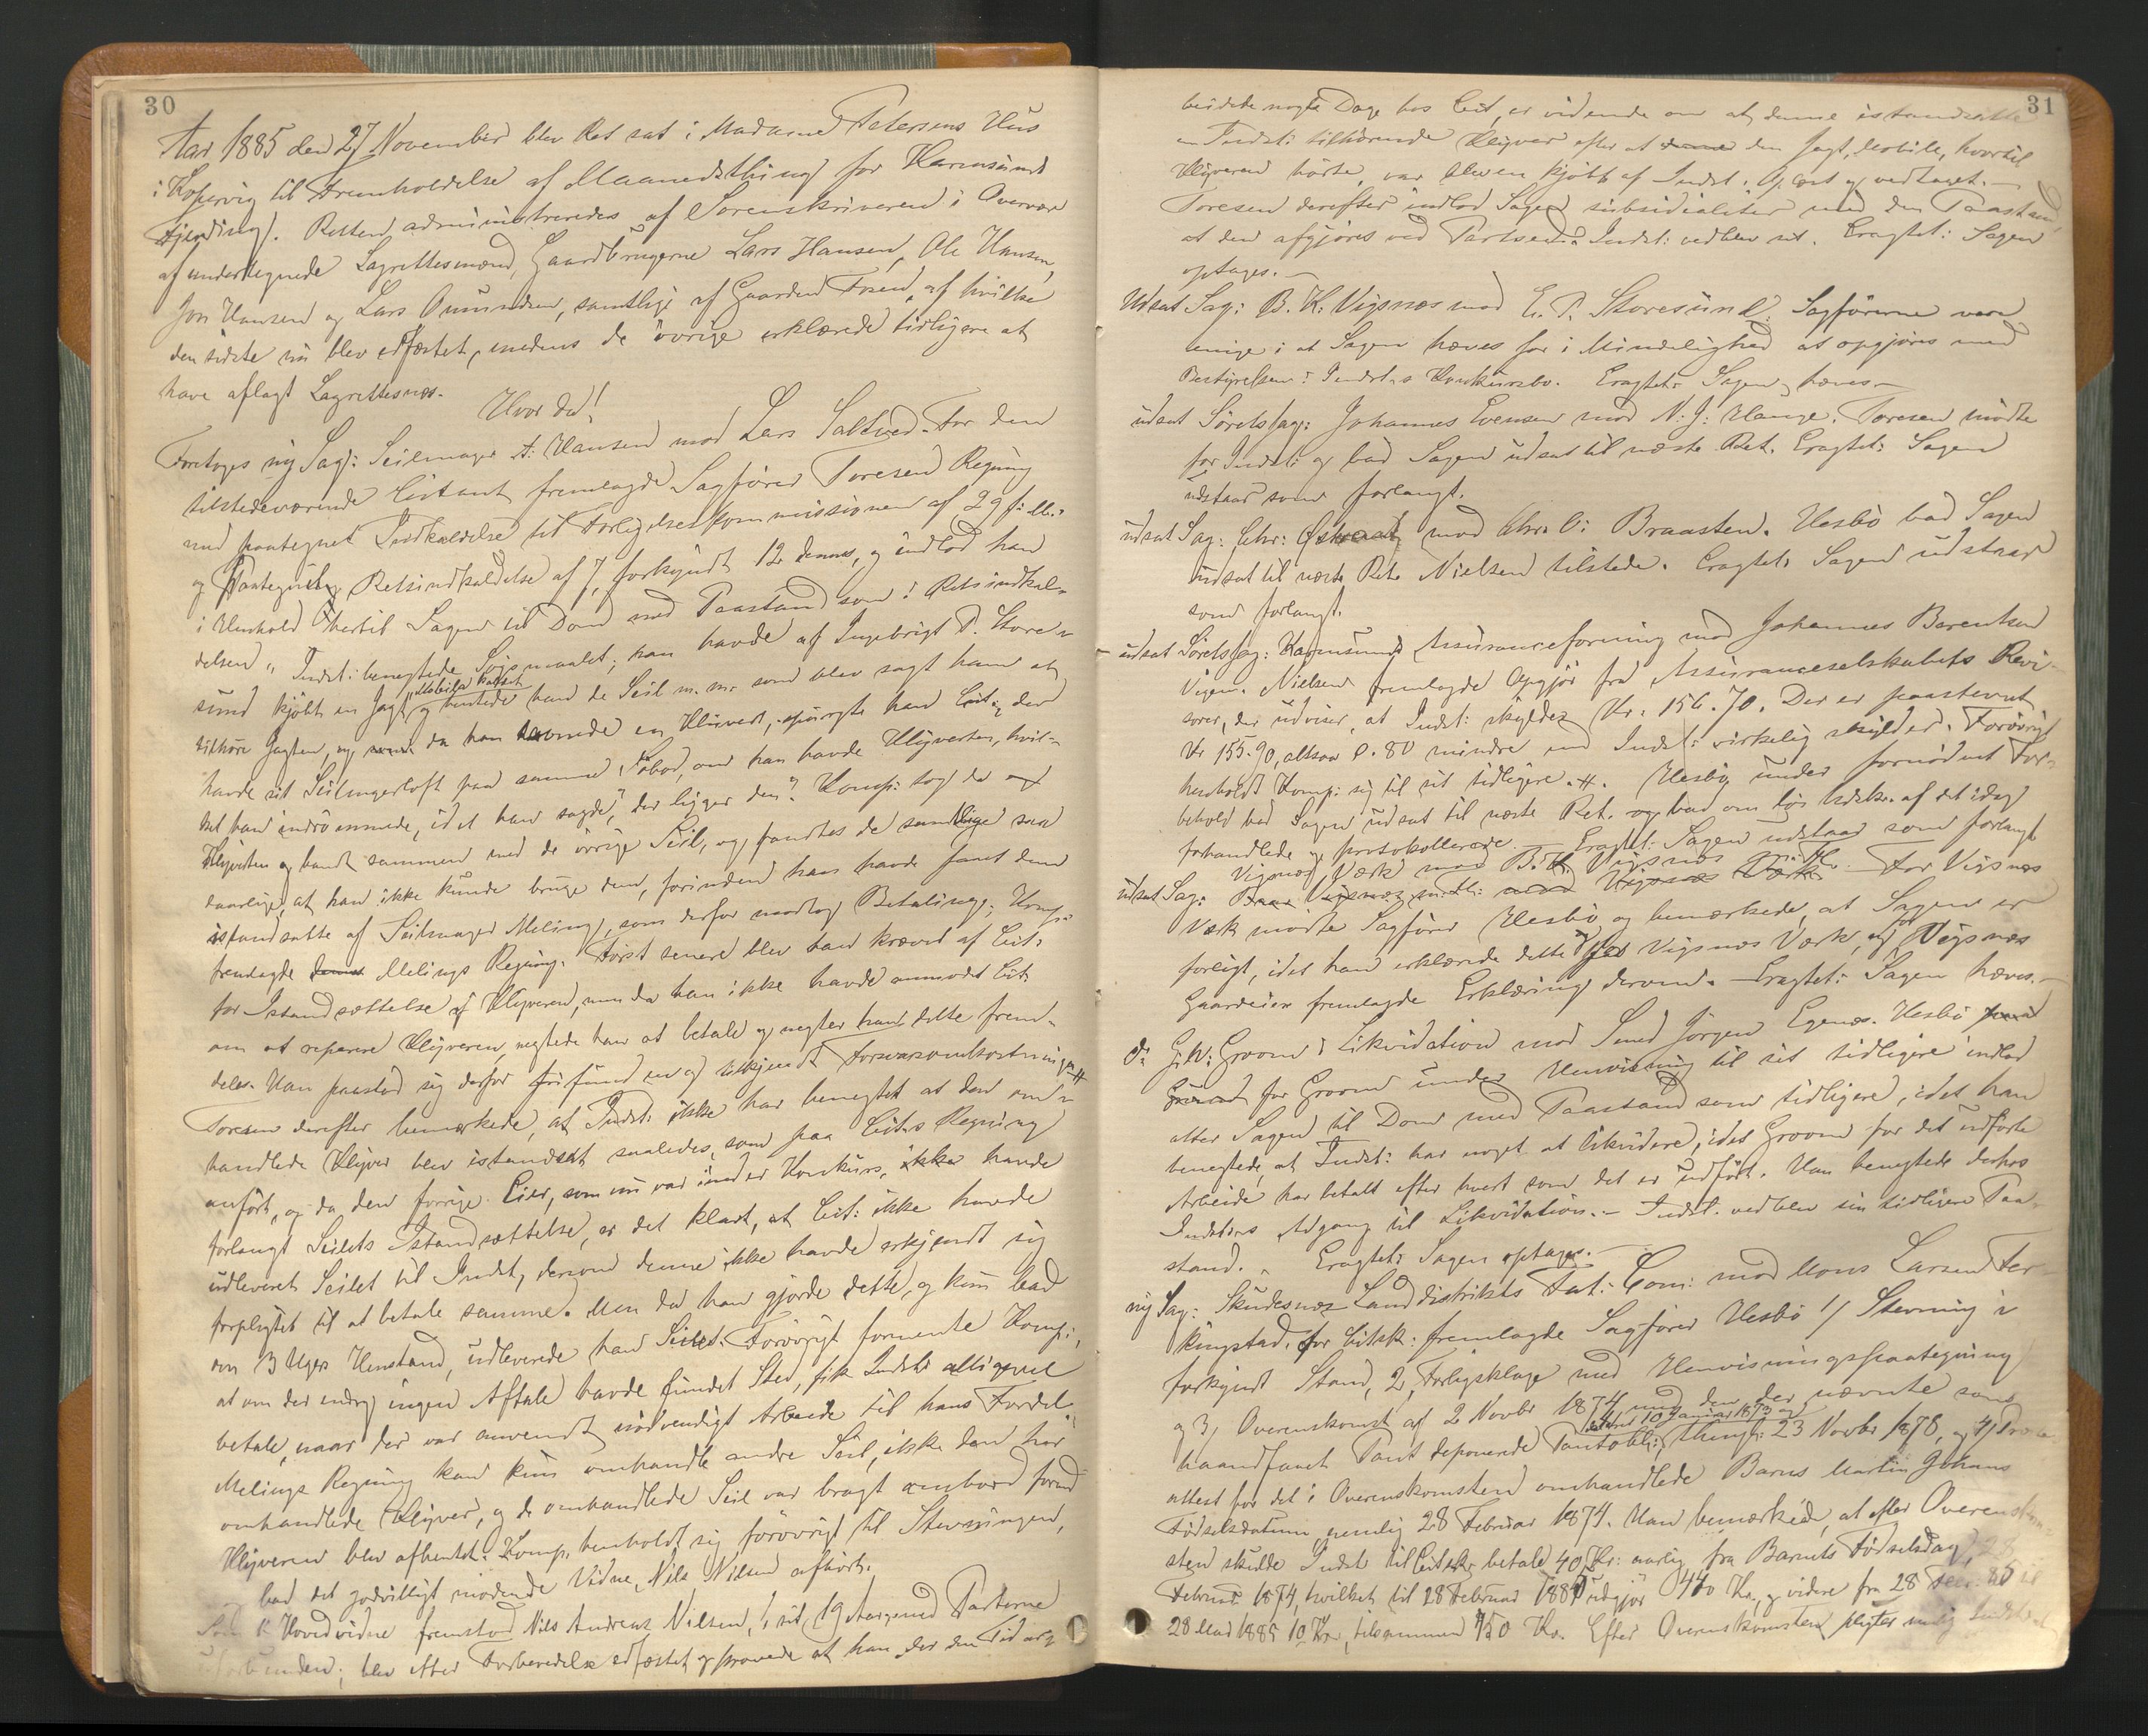 30
Aar 1885 den 27 November blev Ret sat i Madame Petersens Hus
i Kopervig til Fremholdelse af Maanedsthing for Karmsund
Tjending. Retten administreredes af Sorenskriveren i Overvær
af undertegnede Lagrettesmænd, Gaardbrugerne Lars Hansen, Ole Hansen,
Jon Hansen og Lars Omundsen, samtlige af Gaarden Fosen, af hvilke
den sidste nu blev edfæstet, medens de øvrige erklærede tidligere at
have aflagt Lagrettesed.
Hvor da!
Foretoges ny Sag: Seilmager A. Hansen mod Lars Saltved. For den
tilstedeværende Citant fremlagde Sagfører Toresen Regning
med paategnet Indkaldelse til Forligelseskommissionen af 29 f. M.
og Paategning Retsindkaldelse af 7, forkyndt 12 dennes, og indlod han
i Henhold hertil Sagen til Dom med Paastand som i Retsindkal-
delsen. Indst: benegtede Søgsmaalet; han havde af Ingebrigt P. Store-
sund kjøbt en Jagt, Mobile kaldet og hentede han de Seil m.m. som blev sagt ham at
tilhøre Jagten, og da han savnede en Klyver, spurgte han Cit., der
havde sit Seilmagerloft paa samme Søbod, om han havde Klyveren, hvil-
ket han indrømmede, idet han sagde, "der ligger den". Komp: tog da og
Klyveren og bandt sammen med de øvrige Seil, og fandtes de samtlige saa
daarlige, at han ikke kunde bruge dem, forinden han havde faaet dem
istandsatte af Seilmager Meling, som derfor modtog Betaling; Komp:
fremlagde Melings Regning. Først senere blev han krævet af Cit:
for Istandsættelse af Klyveren, men da han ikke havde anmodet Cit:
om at reparere Klyveren, negtede han at betale og negter han dette frem-
deles. Han paastod sig derfor frifunden og tilkjendt Forsvarsomkostninger.
Toresen derefter bemærkede, at Indst: ikke har benegtet at den om-
handlede Klyver blev istandsat saaledes, som paa Citts Regning
anført, og da den forrige Eier, som nu var under Konkurs, ikke havde
forlangt Seilets Istandsættelse, er det klart, at Cit: ikke havde
udleveret Seilet til Indst, dersom denne ikke havde erkjendt sig
forpligtet til at betale samme. Men da han gjorde dette, og kun bad
om 3 Ugers Henstand, udleverede han Seilet. Forøvrigt formente Komp:,
at om der endog ingen Aftale havde fundet Sted, fik Indst: alligevel
betale, naar der var anvendt nødvendigt Arbeide til hans Fordel.
Melings Regning kan kun omhandle andre Seil, ikke den her
omhandlede Klyver, og de omhandlede Seil var bragt ombord forend
Klyveren blev afhentet. Komp: henholdt sig forøvrigt til Stevningen,
bad det godvilligt mødende Vidne, Nils Nilsen afhørt.
Som 1 Hovedvidne fremstod Nils Andreas Nilsen, i sit 19 Aar, med Parterne
uforbunden; blev efter Forberedelse edfæstet og provede at han, der den Tid ar-
31
beidede nogle Dage hos Cit, er vidende om at denne istandsatte
en Indst: tilhørende Klyver efter at den Jagt, Mobile, hvortil
Klyveren hørte, var bleven kjøbt af Indst. Oplæst og vedtaget.
Toresen derefter indlod Sagen subsidialiter med den Paastand,
at den afgjøres ved Partsed. Indst: vedblev sit. Eragtet: Sagen
optages.
Udsat Sag: B. K. Vigsnæs mod E. P. Storesund. Sagførerne vare
enige i at Sagen hæves for i Mindelighed at opgjøres med
Bestyrelsen i Indst:s Konkursbo. Eragtet: Sagen hæves
udsat Søretssag: Johannes Evensen mod N. J. Hauge. Toresen mødte
for Indst: og bad Sagen udsat til næste Ret. Eragtet: Sagen
udstaar som forlangt.
udsat Sag: Chr: Østraat mod Chr. O: Braasten. Hesbø bad Sagen
udsat til næste Ret. Nielsen tilstede. Eragtet: Sagen udstaar
som forlangt.
udsat Søretssag: Karmsunds Assuranceforening mod Johannes Barentsen
Vigen. Nielsen fremlagde Opgjør fra Assuranceselskabets Revi-
sorer, der udviser, at Indst: skylder Kr. 156.70. Der er paastevnt
Kr 155.90, altsaa 0.80 mindre end Indst: virkelig skylder. Forøvrigt
henholdt Komp: sig til sit tidligere. Hesbø under fornødent For-
behold bad Sagen udsat til næste Ret og bad om løs Udskr. af det idag
forhandlede og protokollerede. Eragtet: Sagen udstaar som forlangt
Vigsnæs Værk mod B. K. Vigsnæs
udsat Sag: For Vigsnæs
Værk mødte Sagfører Hesbø og bemærkede, at Sagen er
forligt, idet han erklærede dette for Vigsnæs Værk, og for Vigsnæs
Gaardeier fremlagde Erklæring derom. Eragtet: Sagen hæves.
do G. W. Groom i Likvidation mod Smed Jørgen Egenæs. Hesbø
for Groom under Henvisning til sit tidligere indlod
atter Sagen til Dom med Paastand som tidligere, idet han
benegtede, at Indst: har noget at likvidere, idet Groom for det udførte
Arbeide har betalt efter hvert som det er udført. Han benegtede derhos
Indst:ns Adgang til Likvidation. Indst: vedblev sin tidligere Paa-
stand. Eragtet: Sagen optages.
ny Sag: Skudesnæs Landdistrikts Fat: Com: mod Mons Larsen Fer-
kingstad. For Citsk. fremlagde Sagfører Hesbø 1/ Stevning i
forkyndt Stand, 2, Forligsklage med Henvisningspaategning
og 3, Overenskomst af 2 Novbr 1874 med den der nævnte som
haandfaaet Pant deponerede Pantobl: dateret 10 Januar 1873 og thingl: 23 Novbr 1878, og 4,
attest for det i Overenskomsten omhandlede Barns Martin Johans
Fødselsdatum, nemlig 28 Februar 1874. Han bemærkede, at efter Overenskom-
sten skulde Indst til Citsk. betale 40 Kr. aarlig fra Barnets Fødselsdag, 28
Februar 1874, hvilket til 28 Februar 1885 udgjør 440 Kr., og videre fra 28 Febr: 85 til
28 Mai 1885 10 Kr., tilsammen 450 Kr. Efter Overenskomsten pligter nemlig Indst: